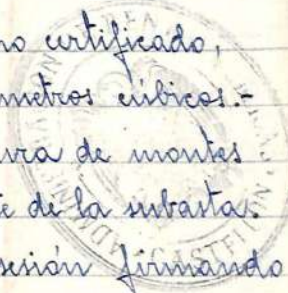 no certificado,
metros cúbicos.-
ura de montes
te de la subasta.
sesión firmando
CASTELLÓN